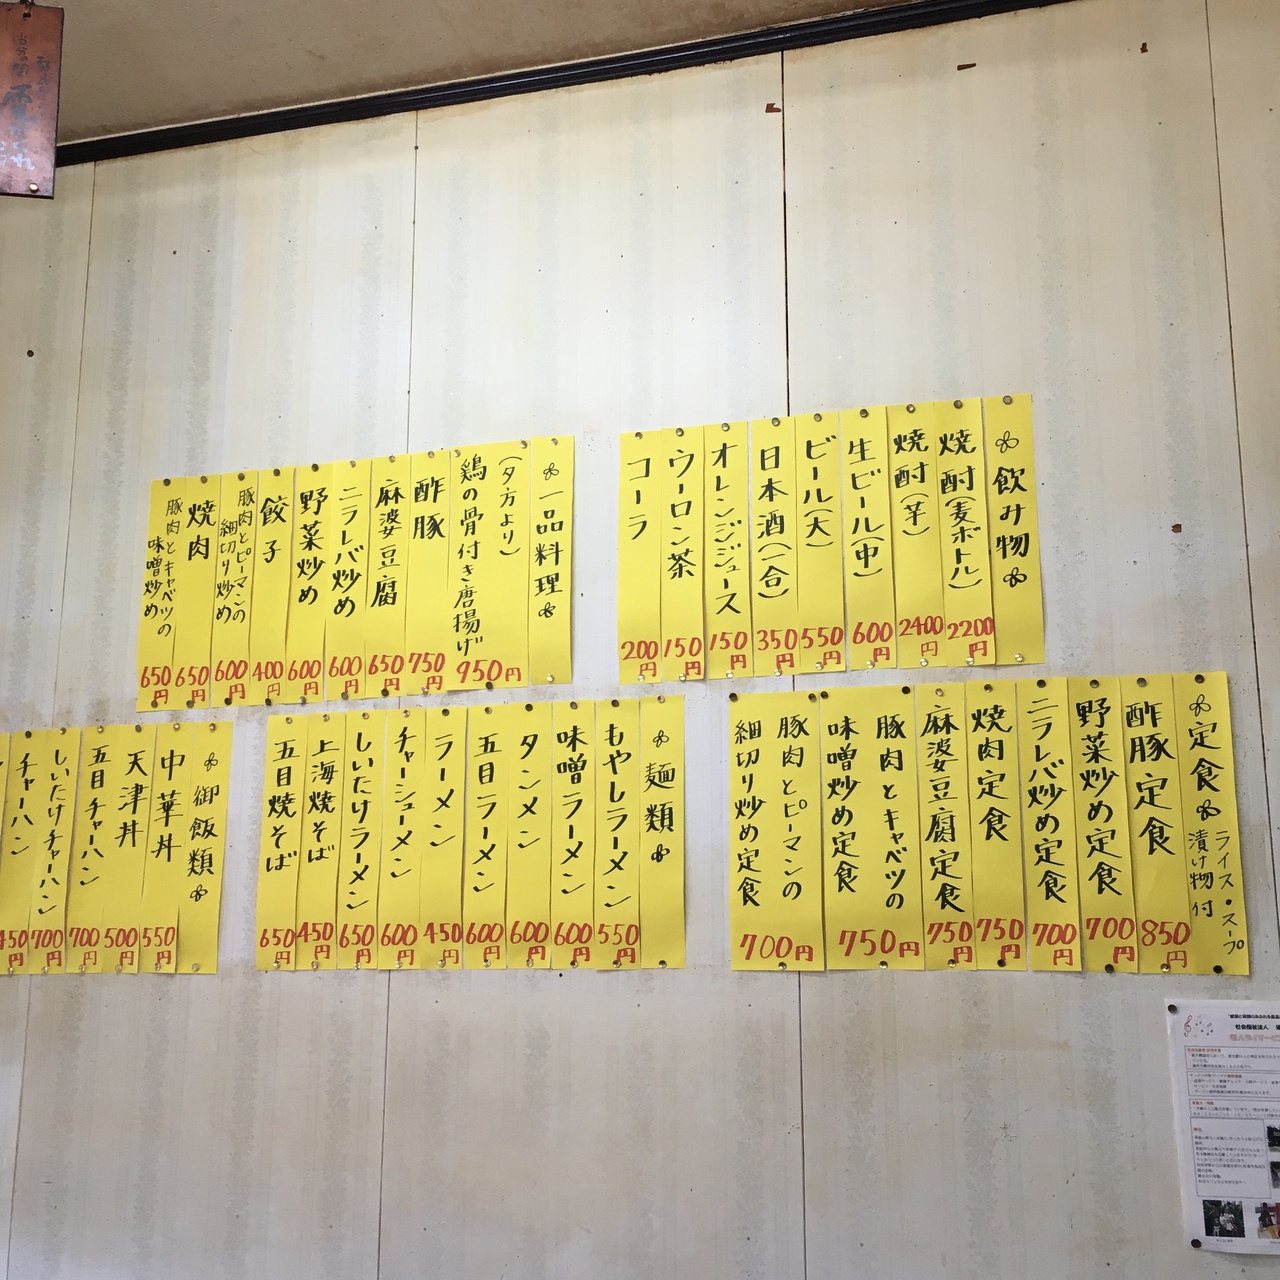 飲み物
焼酎(麦ボトル) 2200円
焼酎(芋) 2400円
生ビール(中) 600円
ビール(大) 550円
日本酒(一合) 350円
オレンジジュース 150円
ウーロン茶 150円
コーラ 200円
一品料理
(夕方より)
鶏の骨付き唐揚げ 950円
酢豚 750円
麻婆豆腐 650円
ニラレバ炒め 600円
野菜炒め 600円
餃子 400円
豚肉とピーマンの
細切り炒め 600円
焼肉 650円
豚肉とキャベツの
味噌炒め 650円
定食 ライス・スープ
漬け物付
酢豚定食 850円
野菜炒め定食 700円
ニラレバ炒め定食 700円
焼肉定食 750円
麻婆豆腐定食 750円
豚肉とキャベツの
味噌炒め定食 750円
豚肉とピーマンの
細切り炒め定食 700円
麺類
もやしラーメン 550円
味噌ラーメン 600円
タンメン 600円
五目ラーメン 600円
ラーメン 450円
チャーシューメン 600円
しいたけラーメン 650円
上海焼そば 450円
五目焼そば 650円
御飯類
中華丼 550円
天津丼 500円
五目チャーハン 700円
しいたけチャーハン 700円
チャーハン 450円
社会福祉法人